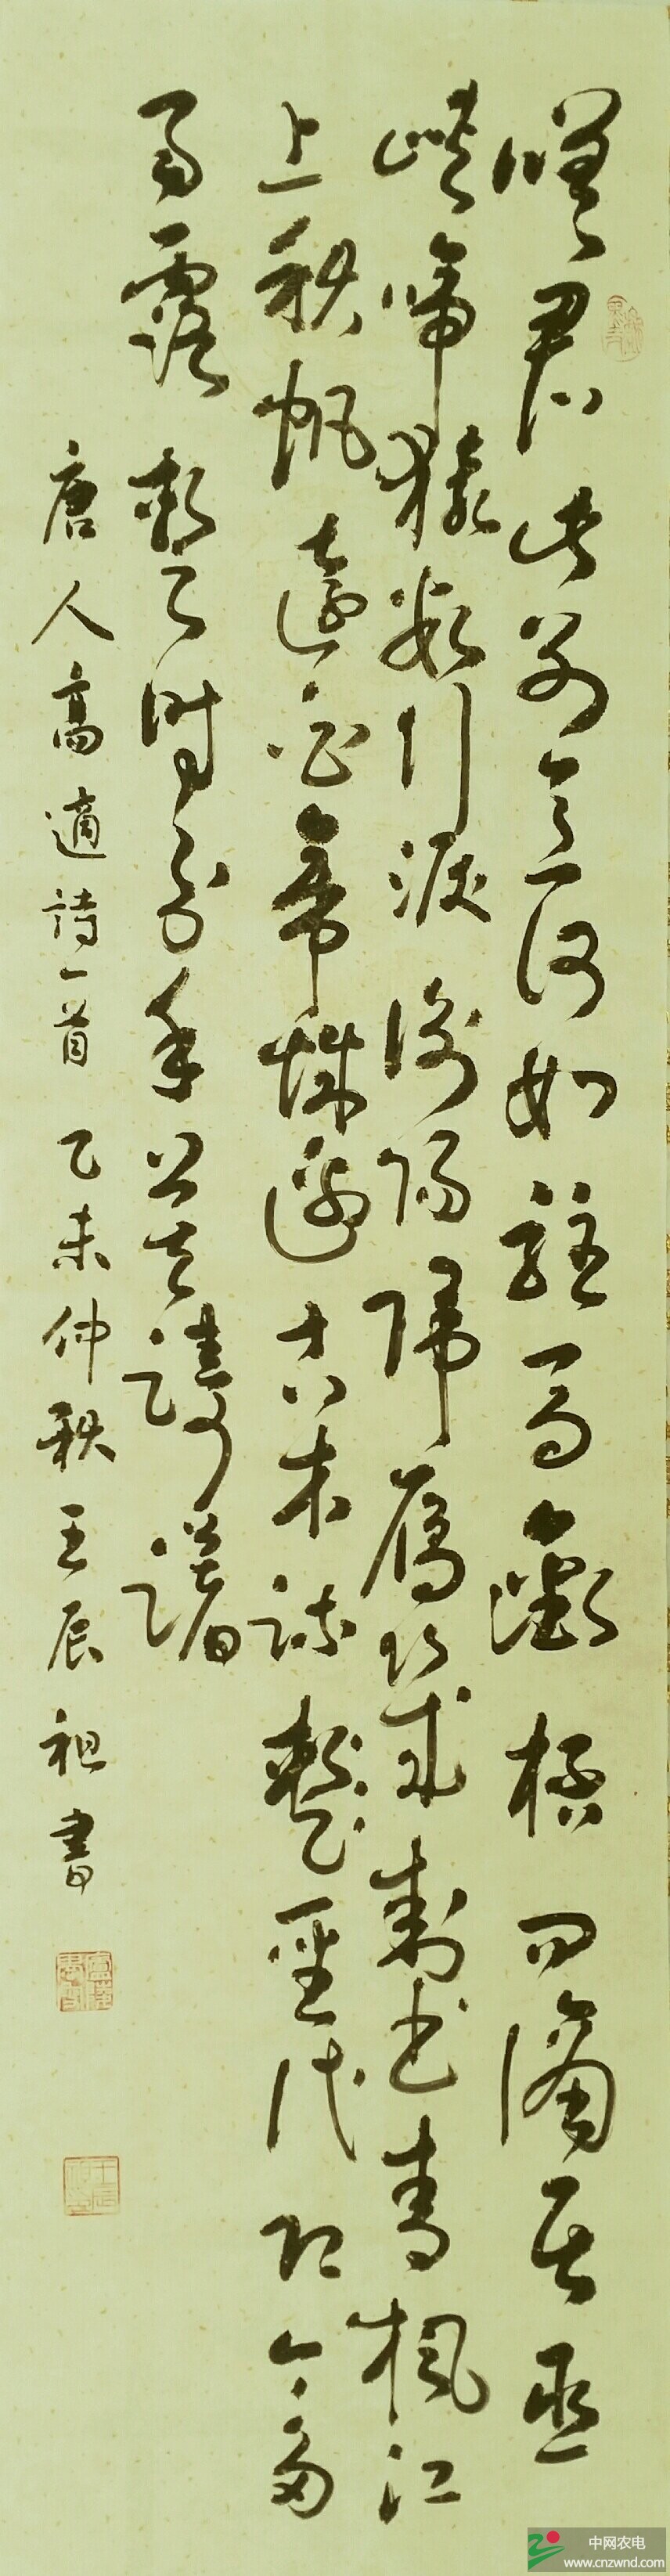 嗟君此别意何如駐馬銜杯問謫居巫
峽啼猿數行淚衡陽歸雁幾封書青楓江
上秋帆遠白帝城邊古木疎暫聖代即今多
雨露暫時分手莫躊躇
唐人高適詩一首 乙未仲秋王辰祖書
中网农电
www.cnzwnd.com